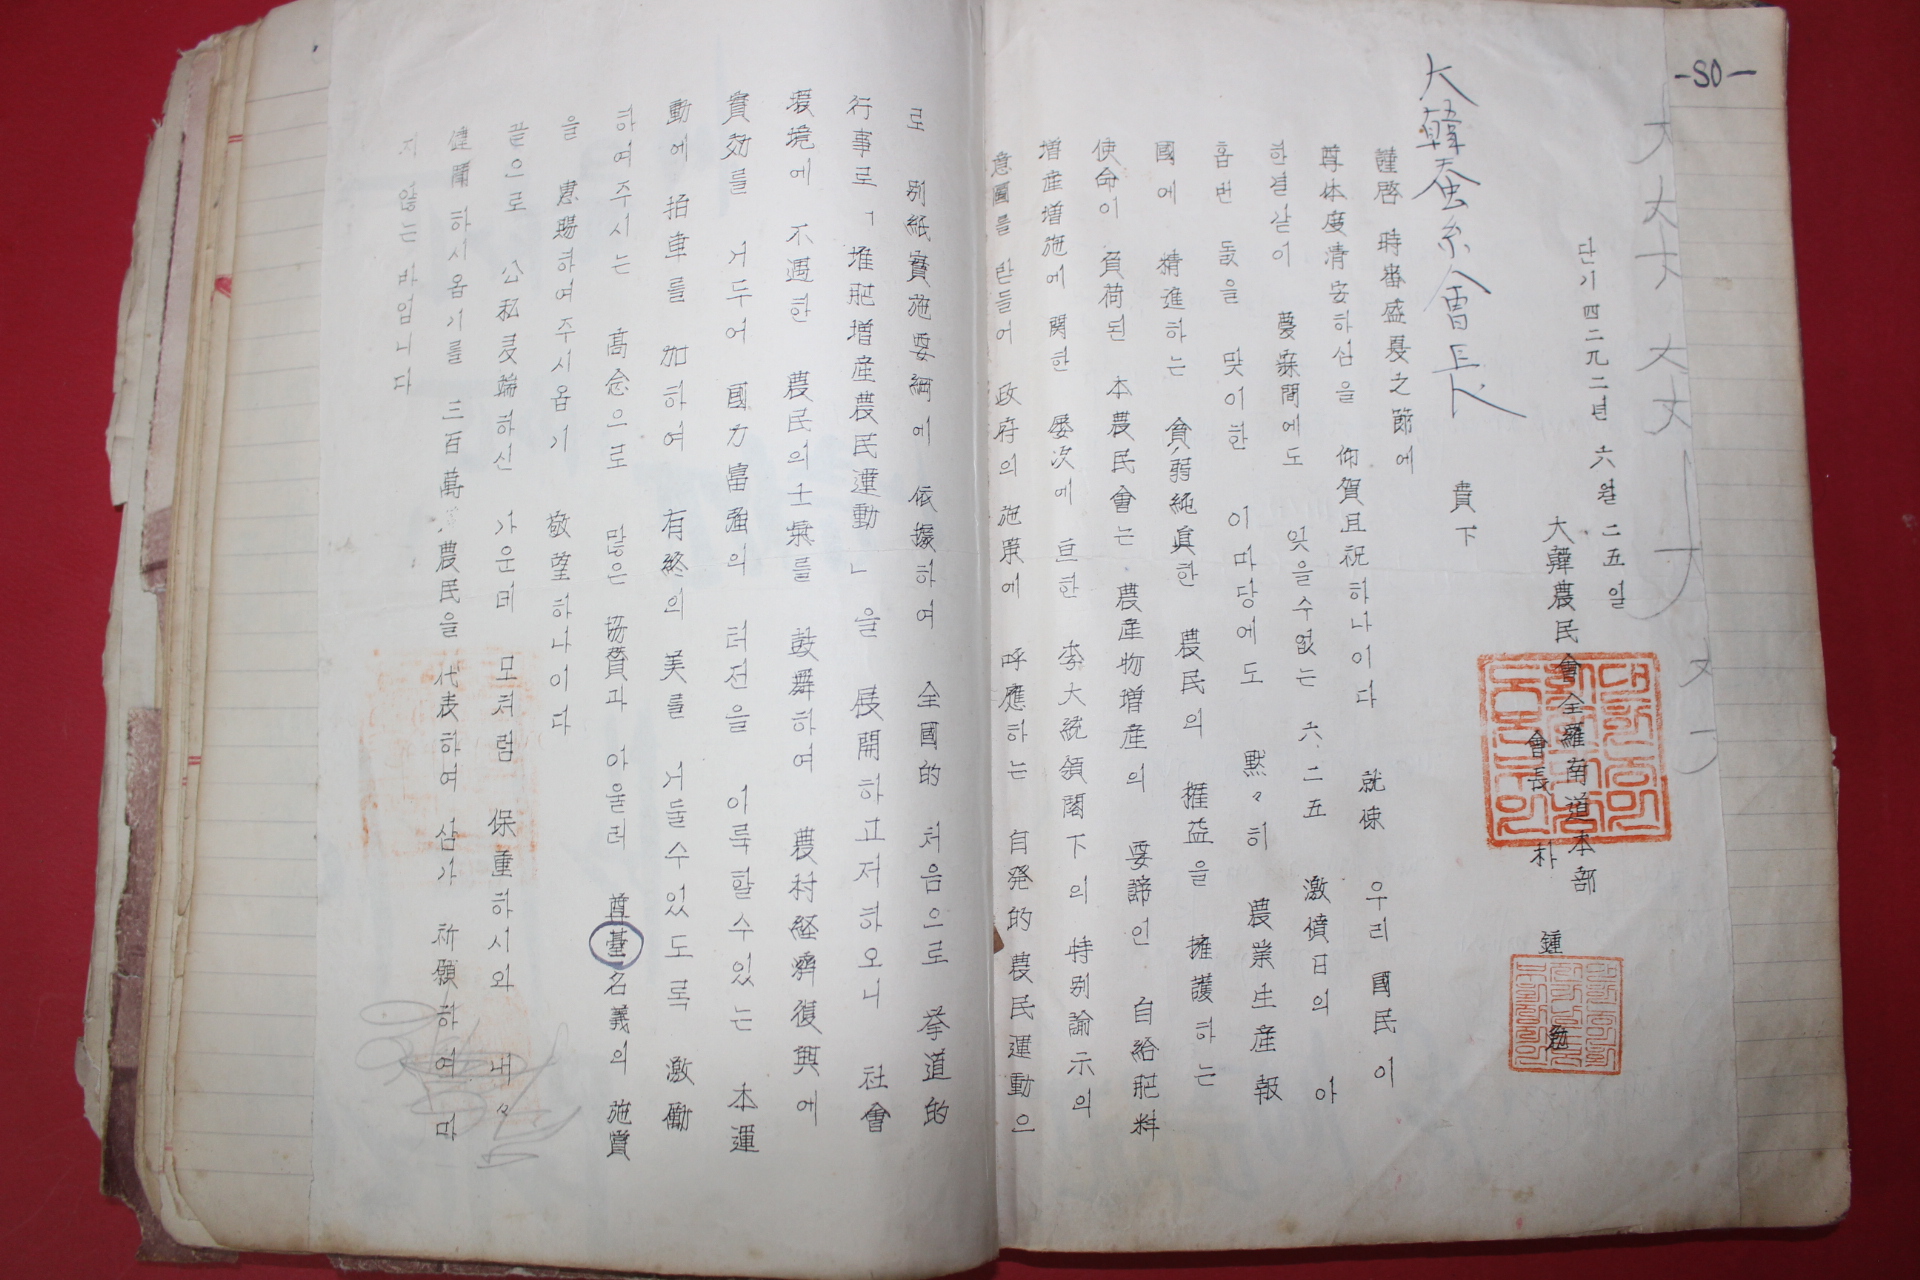 -80-
단기 四二九二년 六월 二五일
大韓農民會全羅南道本部
會長 朴 鍾 勉
大韓蚕糸會長 貴下
謹啓 時審盛夏之節에
尊体度清安하심을 仰賀且祝하나이다 就悚 우리 國民이
한결같이 蔓寐間에도 잊을수없는 六.二五 激憤日의 아
홉번 돐을 맞이한 이마당에도 黙々히 農業生産報
國에 精進하는 貧弱純眞한 農民의 權益을 擁護하는
使命이 負荷된 本農民會는 農産物增産의 要諦인 自給肥料
增産增施에 関한 屡次에 亘한 李大統領閣下의 特别諭示의
意圖를 받들어 政府의 施策에 呼應하는 自発的 農民運動으
로 别紙實施要綱에 依據하여 全國的 처음으로 挙道的
行事로「堆肥增産農民運動」을 展開하고저하오니 社會
環境에 不遇한 農民의 士氣를 鼓舞하여 農村経濟復興에
實効를 거두어 國力富强의 터전을 이룩할수있는 本運
動에 拍車를 加하여 有終의 美를 거둘수있도록 激勵
하여주시는 高念으로 많은 協賛과 아울러 尊臺名義의 施賞
을 惠賜하여주시옵기 敬望하나이다
끝으로 公私多端하신 가운데 모처럼 保重하시와 내々
健闘하시옵기를 三百萬 農民을 代表하여 삼가 祈願하여 마
지 않는바입니다